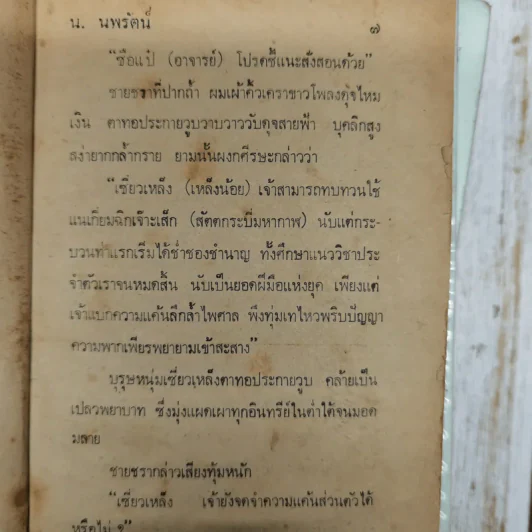 น. นพรัตน์
๗
"ซือแป๋ (อาจารย์) โปรดชี้แนะสั่งสอนด้วย"
ชายชราที่ปากถ้ำ ผมเผ้าคิ้วเคราขาวโพลงดุจไหม
เงิน ตาทอประกายวูบวาบวาววับดุจสายฟ้า บุคลิกสูง
สง่ายากกล้ำกราย ยามนั้นผงกศีรษะกล่าวว่า
"เซี่ยวเหล็ง (เหล็งน้อย) เจ้าสามารถทบทวนใช้
แนเกี่ยมฉิกเจ๊าะเส็ก (สัตตกระบี่มหากาฬ) นับแต่กระ-
บวนท่าแรกเริ่มได้ช่ำชองชำนาญ ทั้งศึกษาแนววิชาประ
จำตัวเราจนหมดสิ้น นับเป็นยอดฝีมือแห่งยุค เพียงแต่
เจ้าแบกความแค้นลึกล้ำไพศาล พึงทุ่มเทไหวพริบปัญญา
ความพากเพียรพยายามเข้าสะสาง"
บุรุษหนุ่มเซี่ยวเหล็งตาทอประกายวูบ คล้ายเป็น
เปลวพยาบาท ซึ่งมุ่งแผดเผาทุกอินทรีย์ในต่ำใต้จนมอด
มลาย
ชายชรากล่าวเสียงทุ้มหนัก
"เซี่ยวเหล็ง เจ้ายังจดจำความแค้นส่วนตัวได้
หรือไม่ ?"